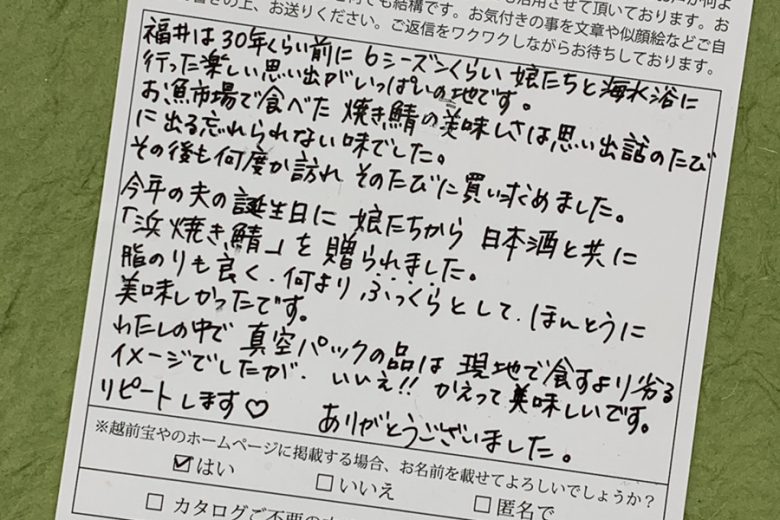 活用させて頂いております。お
書きの上、お送りください。ご返信をワクワクしながらお待ちしております。
何でも結構です。お気付きの事を文章や似顔絵などご自
福井は30年くらい前に6シーズンくらい 娘たちと海水浴に
行った楽しい思い出がいっぱいの地です。
お魚市場で食べた 焼き鯖の美味しさは思い出話のたび
に出る忘れられない味でした。
その後も何度か訪れ そのたびに買い求めました。
今年の夫の誕生日に 娘たちから 日本酒と共に
「浜焼き鯖」を贈られました。
脂のりも良く、何より ふっくらとして、ほんとうに
美味しかったです。
わたしの中で 真空パックの品は 現地で食すより劣る
イメージでしたが、いいえ!! かえって美味しいです。
リピートします♡ ありがとうございました。
※越前宝やのホームページに掲載する場合、お名前を載せてよろしいでしょうか?
☑はい □いいえ □匿名で
□ カタログご不要の